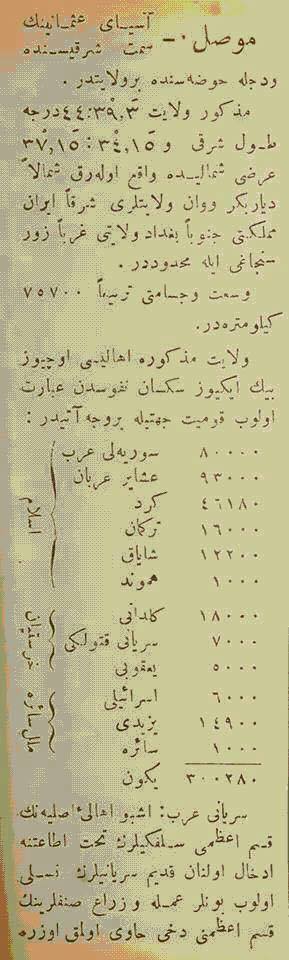 موصل -- آسیای عثمانینك
سمت شرقیسنده
ودجله حوضه‌سنده برولایتدر .
مذكور ولایت ٤٤:٣٩,٣ درجه
طول شرقی و ٣٤,١٥ : ٣٧,١٥
عرضی شمالیده واقع اوله‌رق شمالاً
دیاربكر ووان ولایتلری شرقاً ایران
مملكتی جنوباً بغداد ولایتی غرباً زور
سنجاغی ایله محدوددر .
وسعت وجسامتی تربیعاً ٧٥٧٠٠
كیلومتره‌در.
ولایت مذكوره اهالیسی اوچیوز
بیك ایكیوز سكسان نفوسدن عبارت
اولوب قومیت جهتیله بروجه آتیدر :
اسلام
سوریه‌لی عرب ٨٠٠٠٠
عشایر عربان ٩٣٠٠٠
كرد ٤٦١٨٠
تركمان ١٦٠٠٠
شاباق ١٢٢٠٠
هموند ١٠٠٠
خرستیان
كلدانی ١٨٠٠٠
سریانی قتولیكی ٧٠٠٠
یعقوبی ٥٠٠٠
ملل سائره
اسرائیلی ٦٠٠٠
یزیدی ١٤٩٠٠
سائره ١٠٠٠
یكون ٣٠٠٢٨٠
سریانی عرب: اشبو اهالئ اصلیه‌نك
قسم اعظمی سلفكیلرك تحت اطاعتنه
ادخال اولنان قدیم سریانیلرك نسلی
اولوب بونلر عمله و زراع صنفلرینك
قسم اعظمنی دخی حاوی اولمق اوزره